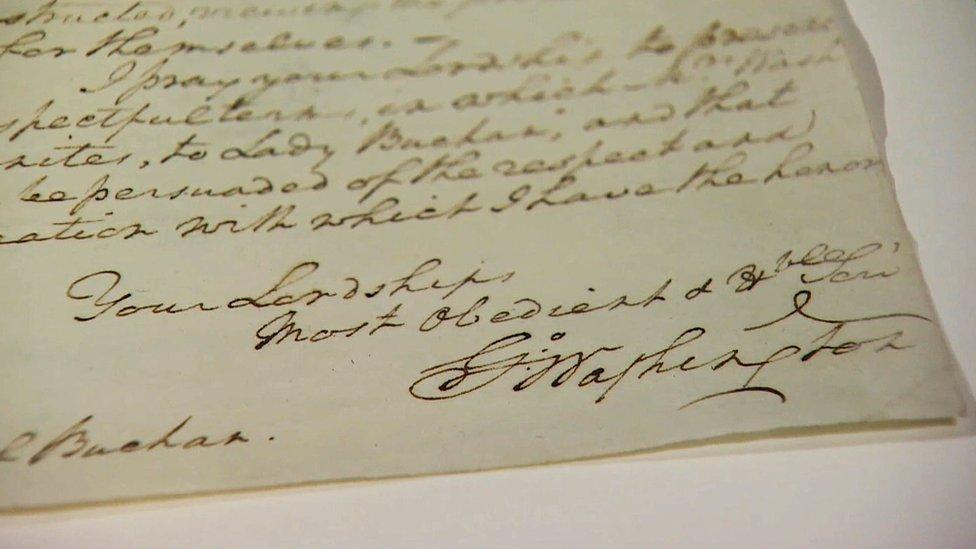 structed, viewing the
for themselves. —
I pray your Lordship to present
spectful terms, in which Mrs Wash
nites, to Lady Buchan; and that
be persuaded of the respect and
cation with which I have the honor
Your Lordships
Most Obedient & Hble Serv
Go: Washington
Buchan.